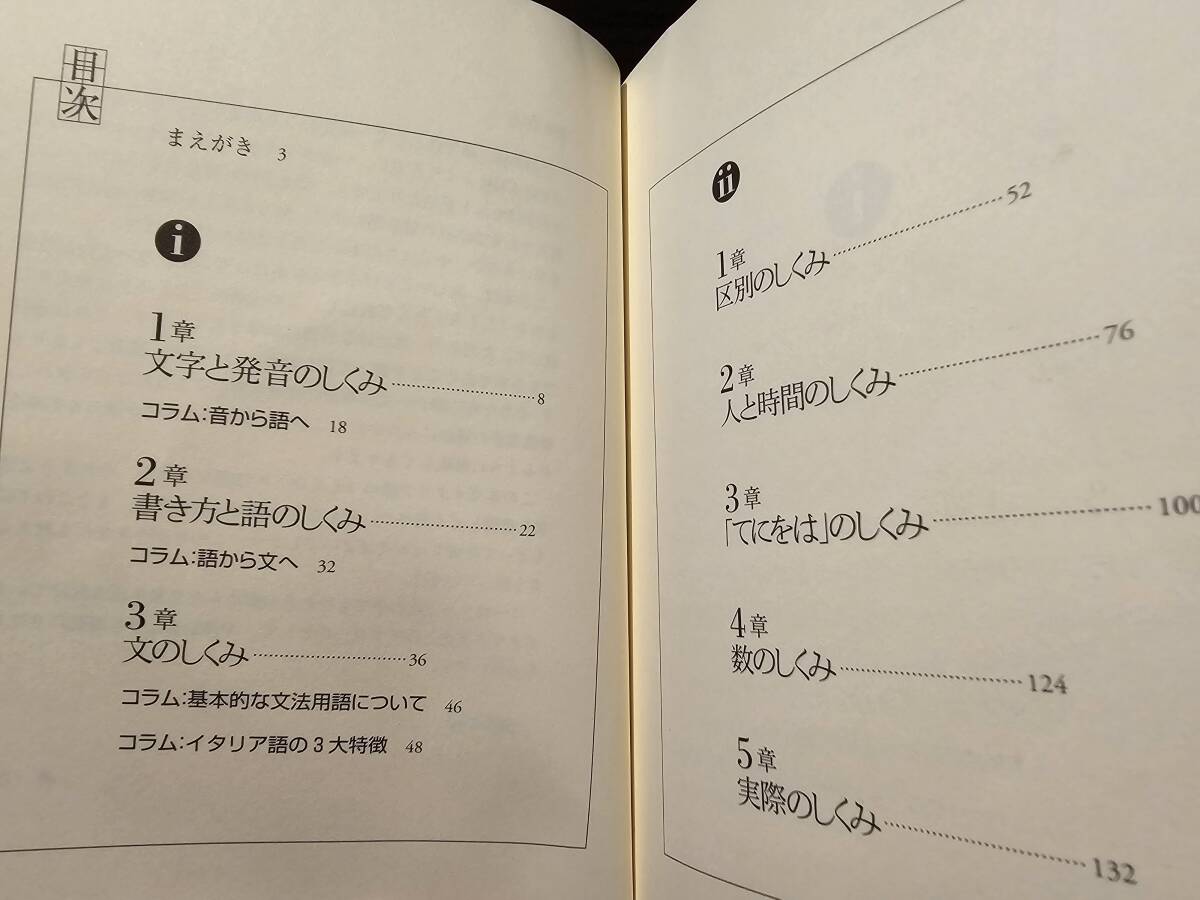 目次
まえがき 3
i
1章
文字と発音のしくみ……………8
コラム:音から語へ 18
2章
書き方と語のしくみ……………22
コラム:語から文へ 32
3章
文のしくみ……………36
コラム:基本的な文法用語について 46
コラム:イタリア語の3大特徴 48
ii
1章
区別のしくみ……………52
2章
人と時間のしくみ……………76
3章
「てにをは」のしくみ……………100
4章
数のしくみ……………124
5章
実際のしくみ……………132